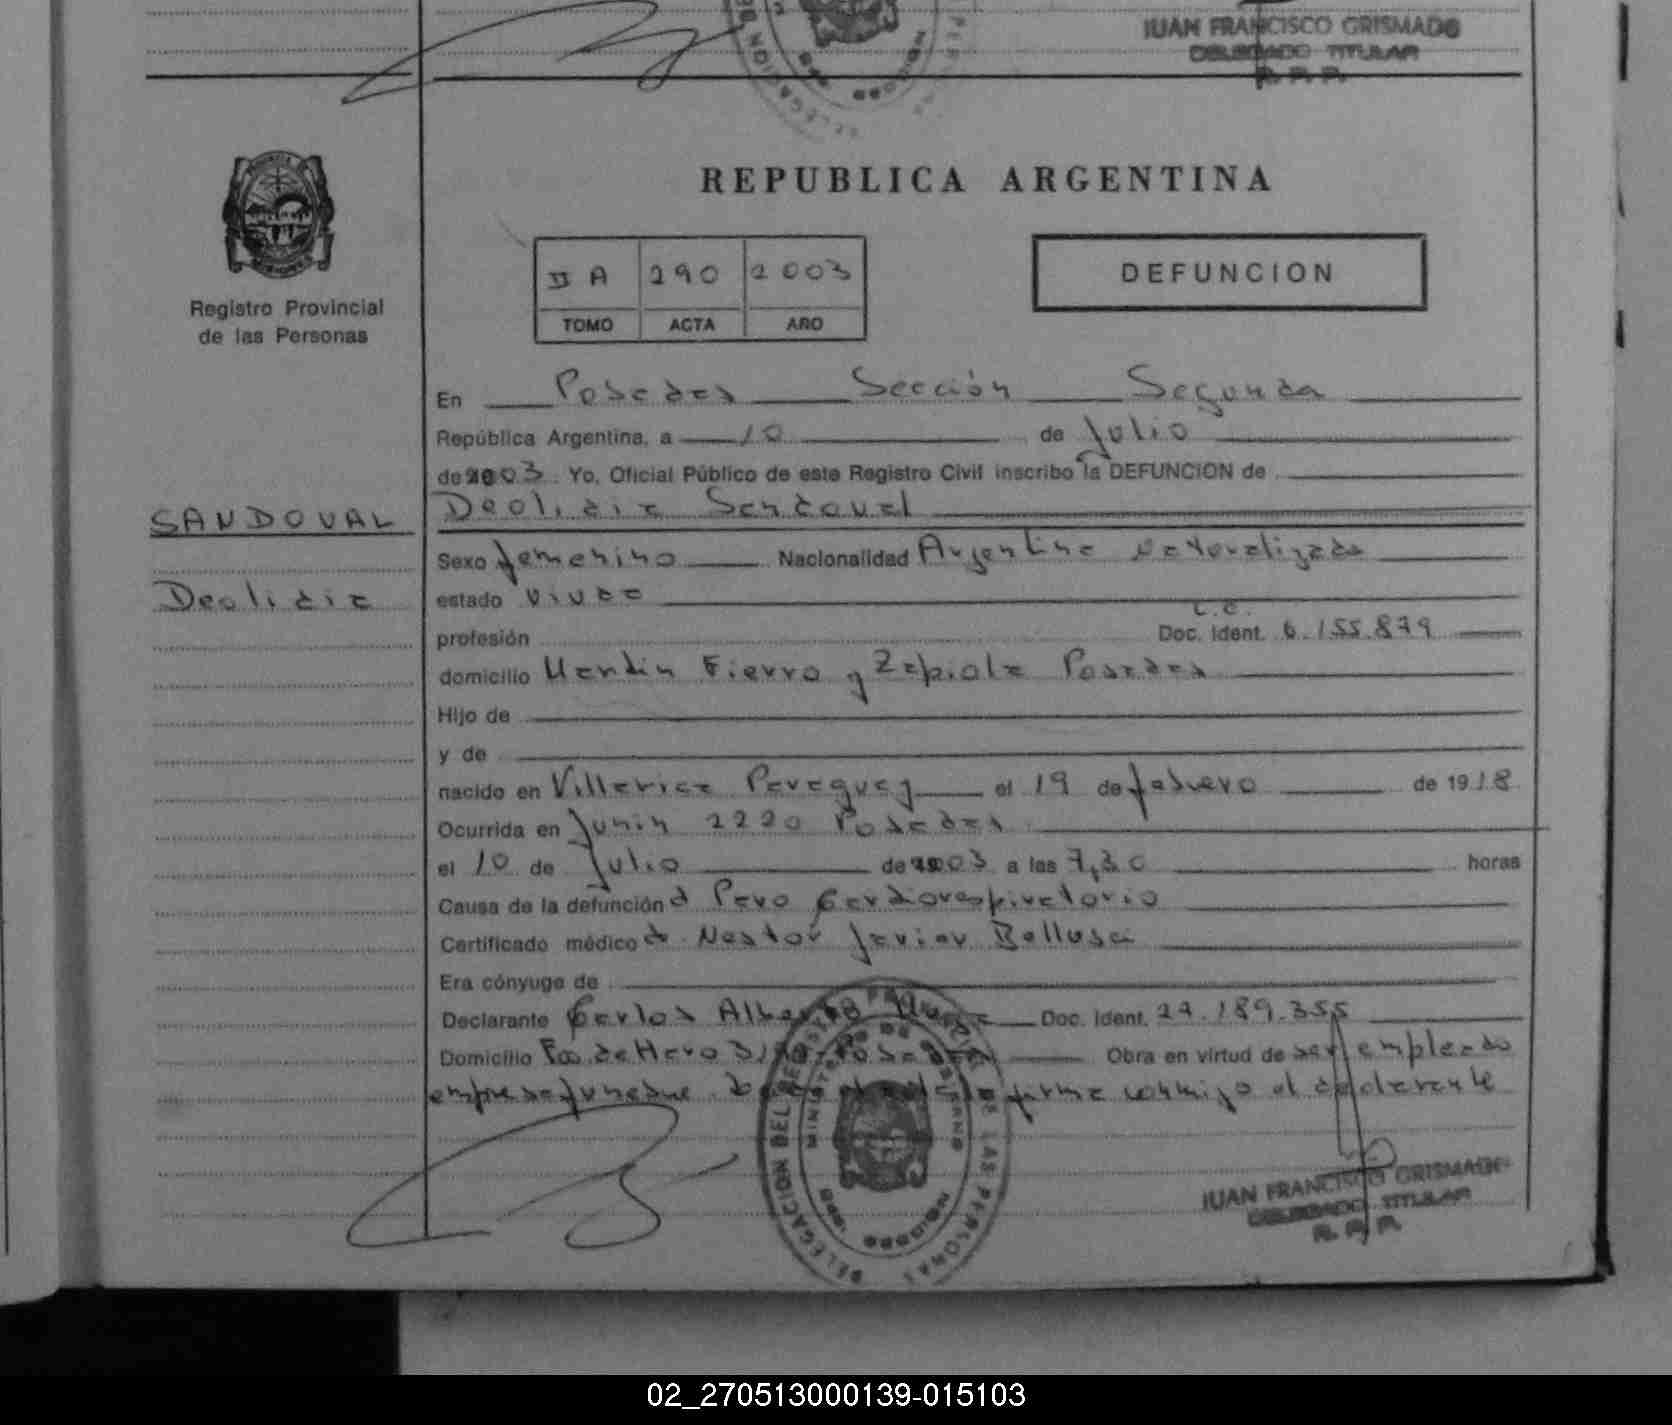 JUAN FRANCISCO GRISMADO
DELEGADO TITULAR
R. P. P.
REPUBLICA ARGENTINA
II A 290 2003
TOMO ACTA AÑO
DEFUNCION
Registro Provincial
de las Personas
En Posadas Sección Segunda
República Argentina, a 10 de Julio
de 2003. Yo, Oficial Público de este Registro Civil inscribo la DEFUNCION de
SANDOVAL
Deolidia Sandoval
Sexo femenino Nacionalidad Argentina naturalizada
Deolidia
estado viuda
L.C.
profesión Doc. Ident. 6.155.879
domicilio Martín Fierro y Zapiola Posadas
Hijo de
y de
nacido en Villarica Paraguay el 19 de febrero de 1918
Ocurrida en Junín 2220 Posadas
el 10 de Julio de 2003 a las 7,30 horas
Causa de la defunción Paro Cardiorespiratorio
Certificado médico Nestor Javier Bellusci
Era cónyuge de
Declarante Carlos Alberto Doc. Ident. 27.189.355
Domicilio Posadas Obra en virtud de ser empleado
firma conmigo el declarante
DELEGACION DEL REGISTRO PROVINCIAL DE LAS PERSONAS
MINISTERIO DE GOBIERNO
MISIONES
JUAN FRANCISCO GRISMADO
DELEGADO TITULAR
R. P. P.
02_270513000139-015103